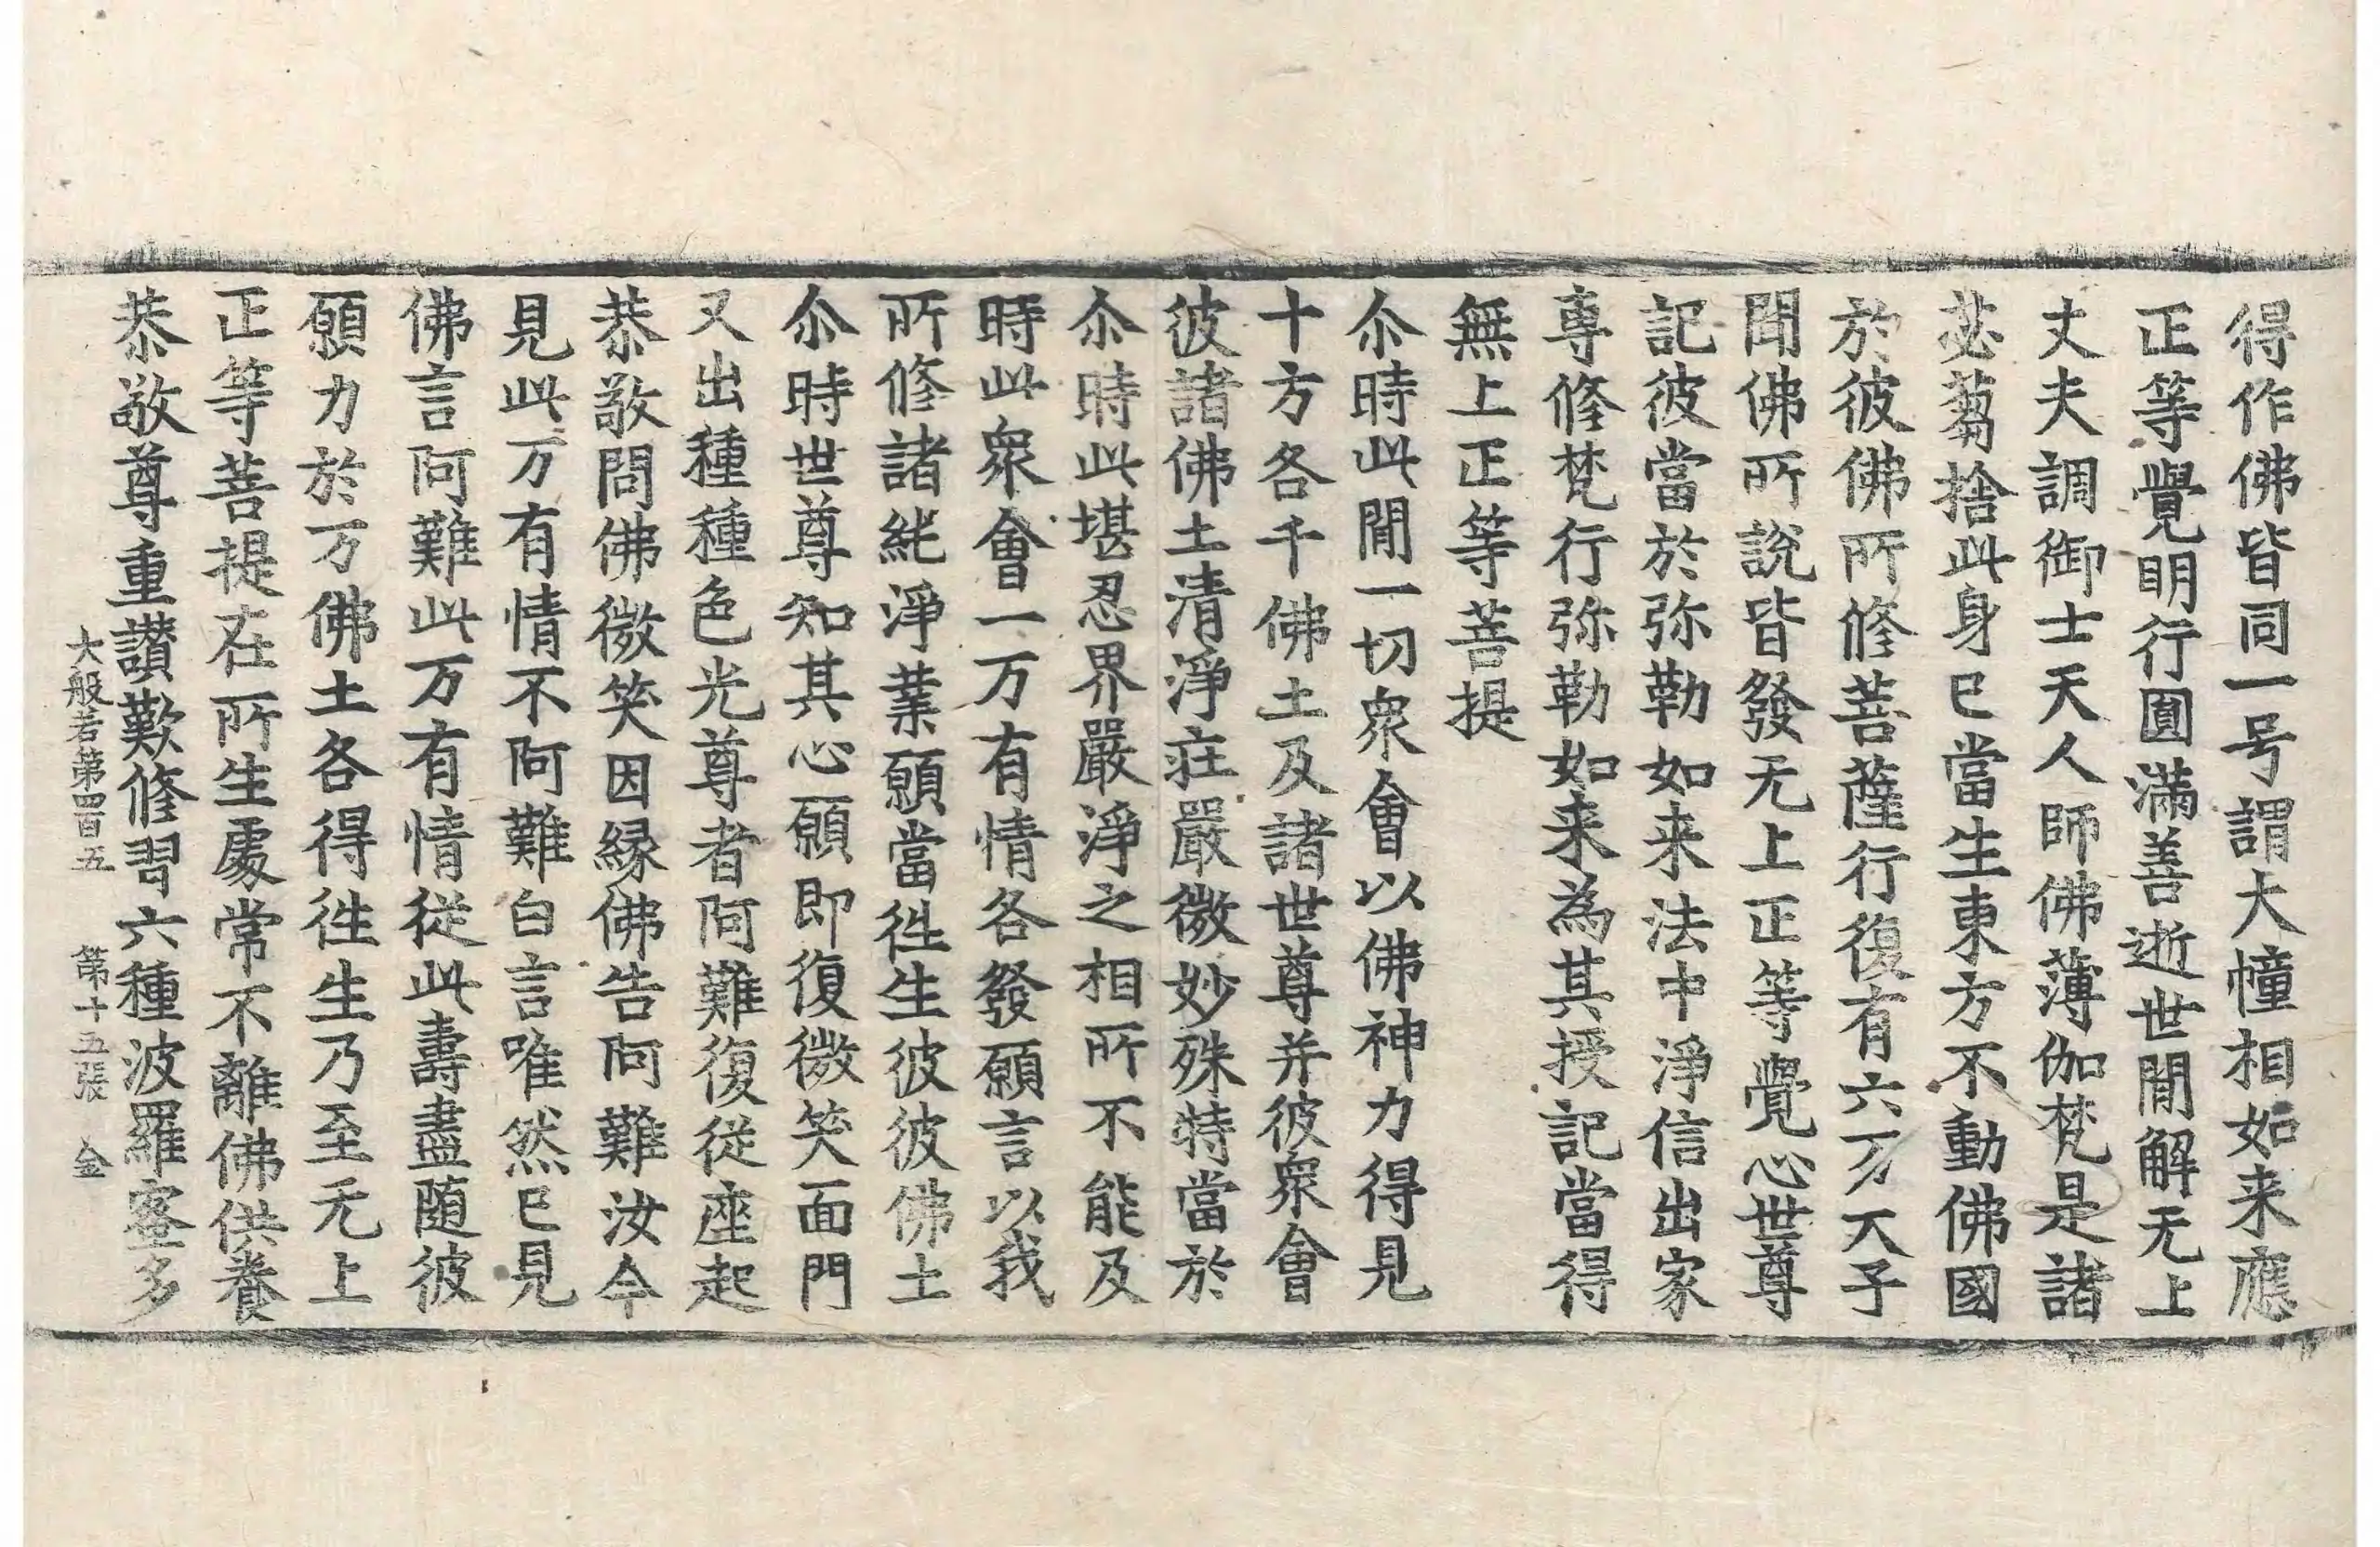 得作佛皆同一号謂大幢相如来應
正等覺明行圓滿善逝世間解无上
丈夫調御士天人師佛薄伽梵是諸
苾蒭捨此身已當生東方不動佛國
於彼佛所修菩薩行復有六万天子
聞佛所說皆發无上正等覺心世尊
記彼當於弥勒如来法中淨信出家
專修梵行弥勒如来為其授記當得
無上正等菩提
尒時此間一切衆會以佛神力得見
十方各千佛土及諸世尊并彼衆會
彼諸佛土清淨莊嚴微妙殊特當於
尒時此堪忍界嚴淨之相所不能及
時此衆會一万有情各發願言以我
所修諸純淨業願當徃生彼彼佛土
尒時世尊知其心願即復微笑面門
又出種種色光尊者阿難復從座起
恭敬問佛微笑因緣佛告阿難汝今
見此万有情不阿難白言唯然已見
佛言阿難此万有情從此壽盡隨彼
願力於万佛土各得徃生乃至无上
正等菩提在所生處常不離佛供養
恭敬尊重讃歎修習六種波羅蜜多
大般若第四百五 第十五張 金